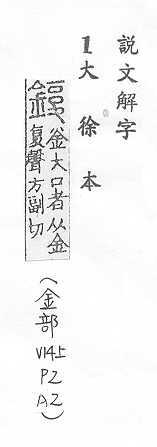 說文解字
1大徐本
鍑 釜大口者从金
复聲方副切
(金部 V14上 P2 A2)